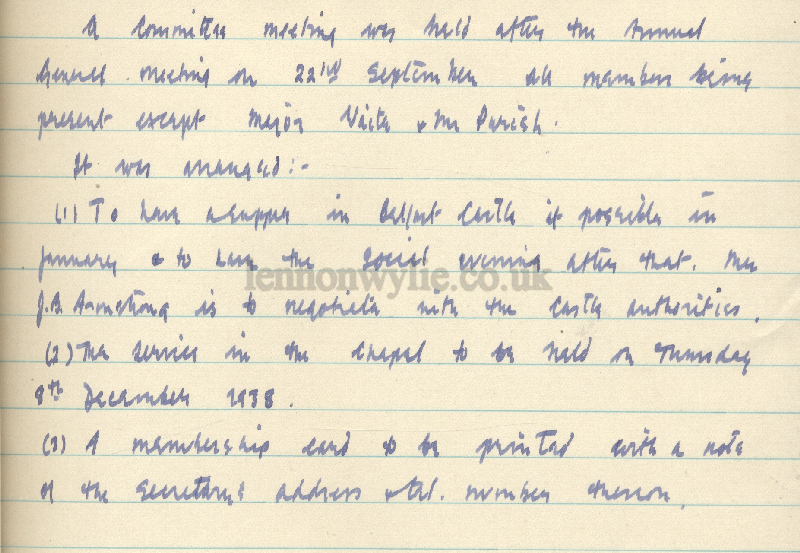 A Committee meeting was held after the Annual
General meeting on 22nd September all members being
present except Major Waite & Mr Parish.
It was arranged:-
(1) To have a supper in Belfast Castle if possible in
January & to have the social evening after that. Mr
J.B. Armstrong is to negotiate with the castle authorities.
lennonwylie.co.uk
(2) The service in the Chapel to be held on Thursday
8th December 1938.
(3) A membership card to be printed with a note
of the Secretary's address & tel. number thereon.